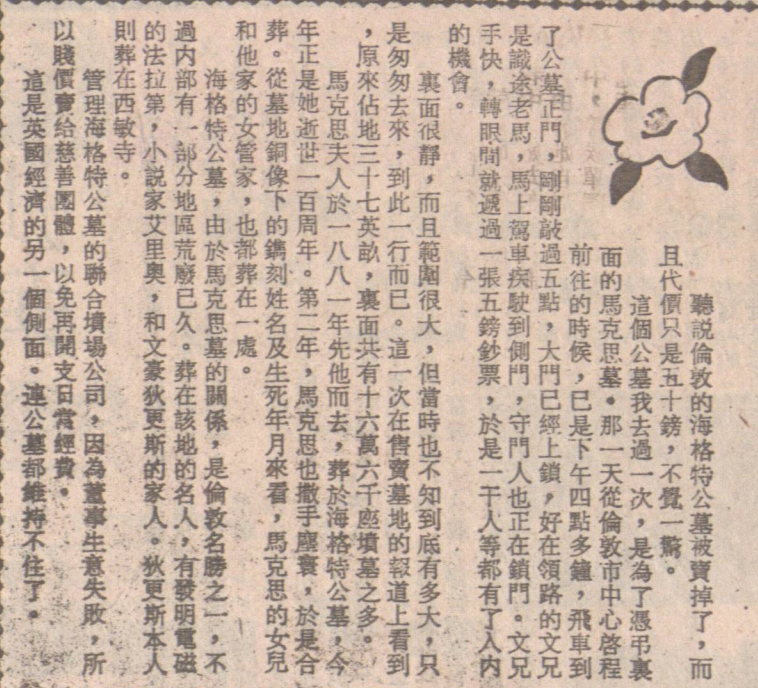 聽說倫敦的海格特公墓被賣掉了，而
且代價只是五十鎊，不覺一驚。
這個公墓我去過一次，是為了憑弔裏
面的馬克思墓。那一天從倫敦市中心啓程
前往的時候，已是下午四點多鐘，飛車到
了公墓正門，剛剛敲過五點，大門已經上鎖，好在領路的文兄
是識途老馬，馬上駕車疾駛到側門，守門人也正在鎖門。文兄
手快，轉眼間就遞過一張五鎊鈔票，於是一干人等都有了入內
的機會。
裏面很靜，而且範圍很大，但當時也不知到底有多大，只
是匆匆去來，到此一行而已。這一次在售賣墓地的報道上看到
，原來佔地三十七英畝，裏面共有十六萬六千座墳墓之多。
馬克思夫人於一八八一年先他而去，葬於海格特公墓，今
年正是她逝世一百周年。第二年，馬克思也撒手塵寰，於是合
葬。從墓地銅像下的鐫刻姓名及生死年月來看，馬克思的女兒
和他家的女管家，也都葬在一處。
海格特公墓，由於馬克思墓的關係，是倫敦名勝之一，不
過內部有一部分地區荒廢已久。葬在該地的名人，有發明電磁
的法拉第，小說家艾里奧，和文豪狄更斯的家人。狄更斯本人
則葬在西敏寺。
管理海格特公墓的聯合墳場公司，因為董事生意失敗，所
以賤價賣給慈善團體，以免再開支日常經費。
這是英國經濟的另一個側面。連公墓都維持不住了。